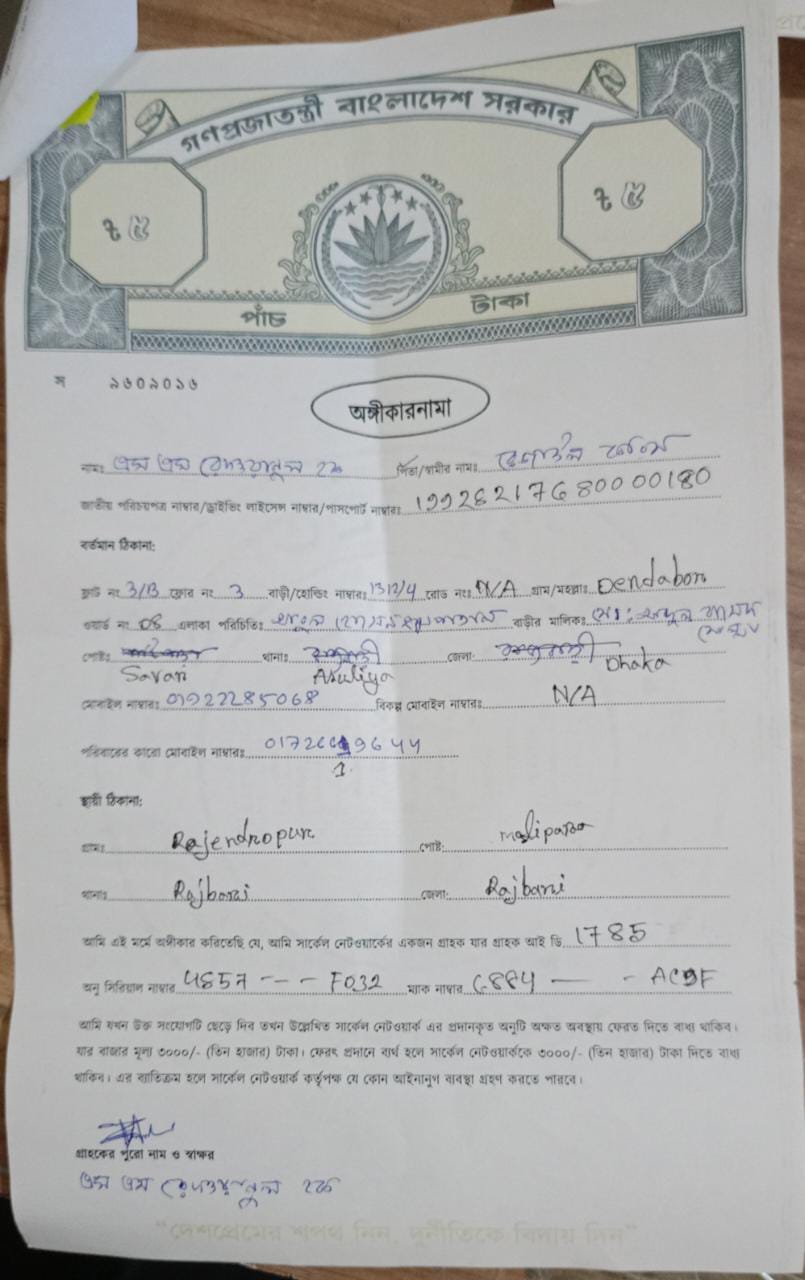 গণপ্রজাতন্ত্রী বাংলাদেশ সরকার
৳ ৫ ৳ ৫
পাঁচ টাকা
স ৯৬০৯০১৬
অঙ্গীকারনামা
নামঃ এস এম রেদওয়ানুল হক পিতা/স্বামীর নামঃ
জাতীয় পরিচয়পত্র নাম্বার/ড্রাইভিং লাইসেন্স নাম্বার/পাসপোর্ট নাম্বারঃ 19926217680000180
বর্তমান ঠিকানা:
ফ্লাট নং 3/B ফ্লোর নং 3 বাড়ী/হোল্ডিং নাম্বারঃ 1312/4 রোড নংঃ N/A গ্রাম/মহল্লাঃ Dendabon
ওয়ার্ড নং 08 এলাকা পরিচিতিঃ বাড়ীর মালিকঃ মোঃ
পোষ্টঃ থানাঃ জেলা:
Savar Asuliya Dhaka
মোবাইল নাম্বারঃ 01922285068 বিকল্প মোবাইল নাম্বারঃ N/A
পরিবারের কারো মোবাইল নাম্বারঃ
1
স্থায়ী ঠিকানা:
গ্রামঃ Rajendropur পোষ্ট: malipara
থানাঃ Rajbari জেলা: Rajbari
আমি এই মর্মে অঙ্গীকার করিতেছি যে, আমি সার্কেল নেটওয়ার্কের একজন গ্রাহক যার গ্রাহক আই ডি 1785
অনু সিরিয়াল নাম্বার 4857 --- F032 ম্যাক নাম্বার C884 — - AC9F
আমি যখন উক্ত সংযোগটি ছেড়ে দিব তখন উল্লেখিত সার্কেল নেটওয়ার্ক এর প্রদানকৃত অনুটি অক্ষত অবস্থায় ফেরত দিতে বাধ্য থাকিব।
যার বাজার মূল্য ৩০০০/- (তিন হাজার) টাকা। ফেরৎ প্রদানে ব্যর্থ হলে সার্কেল নেটওয়ার্ককে ৩০০০/- (তিন হাজার) টাকা দিতে বাধ্য
থাকিব। এর ব্যতিক্রম হলে সার্কেল নেটওয়ার্ক কর্তৃপক্ষ যে কোন আইনানুগ ব্যবস্থা গ্রহণ করতে পারবে।
গ্রাহকের পুরো নাম ও স্বাক্ষর
এস এম রেদওয়ানুল হক
"দেশপ্রেমের শপথ নিন, দুর্নীতিকে বিদায় দিন"